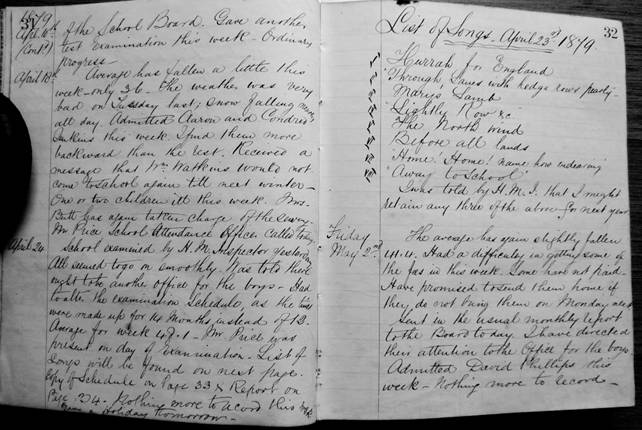 31
1879
April 10th
(Cont'd)
of the School Board. Gave another
test examination this week - Ordinary
progress -
April 18th
Average has fallen a little this
week - only 36 - The weather was very
bad on Tuesday last, snow falling
all day. Admitted Aaron and
Jenkins this week. I find them more
backward than the rest. Received a
message that Wm Watkins would not
come to school again till next winter -
One or two children ill this week. Mrs.
Butt has again taken charge of the sewing.
Mr Price School Attendance Officer called today
April 24
School examined by H. M. Inspector yesterday
All seemed to go on smoothly. Was told there
ought to be another office for the boys - Had
to alter the examination schedule, as the times
were made up for 14 months instead of 12 -
Average for week 48.1 - Mr Price was
present on day of Examination - List of
Songs will be found on next page.
Copy of Schedule on Page 33 & Report on
Page 34 - Nothing more to record this week
Holiday tomorrow -
32
List of Songs. April 23rd 1879
Hurrah for England
"Through lanes with hedge rows pearly"
Mary's Lamb
"Lightly Row &c
The North wind
Before all lands
"Home! Home! name how endearing"
"Away to School"
I was told by H. M. I. that I might
retain any three of the above for next year
Friday
May 2nd
The average has again slightly fallen
44.4. Had a difficulty in getting some of
the fees in this week. Some have not paid.
Have promised to send them home if
they do not bring them on Monday next
Sent in the usual monthly report
to the Board today. I have directed
their attention to the Office for the boys
Admitted David Phillips this
week - Nothing more to record -